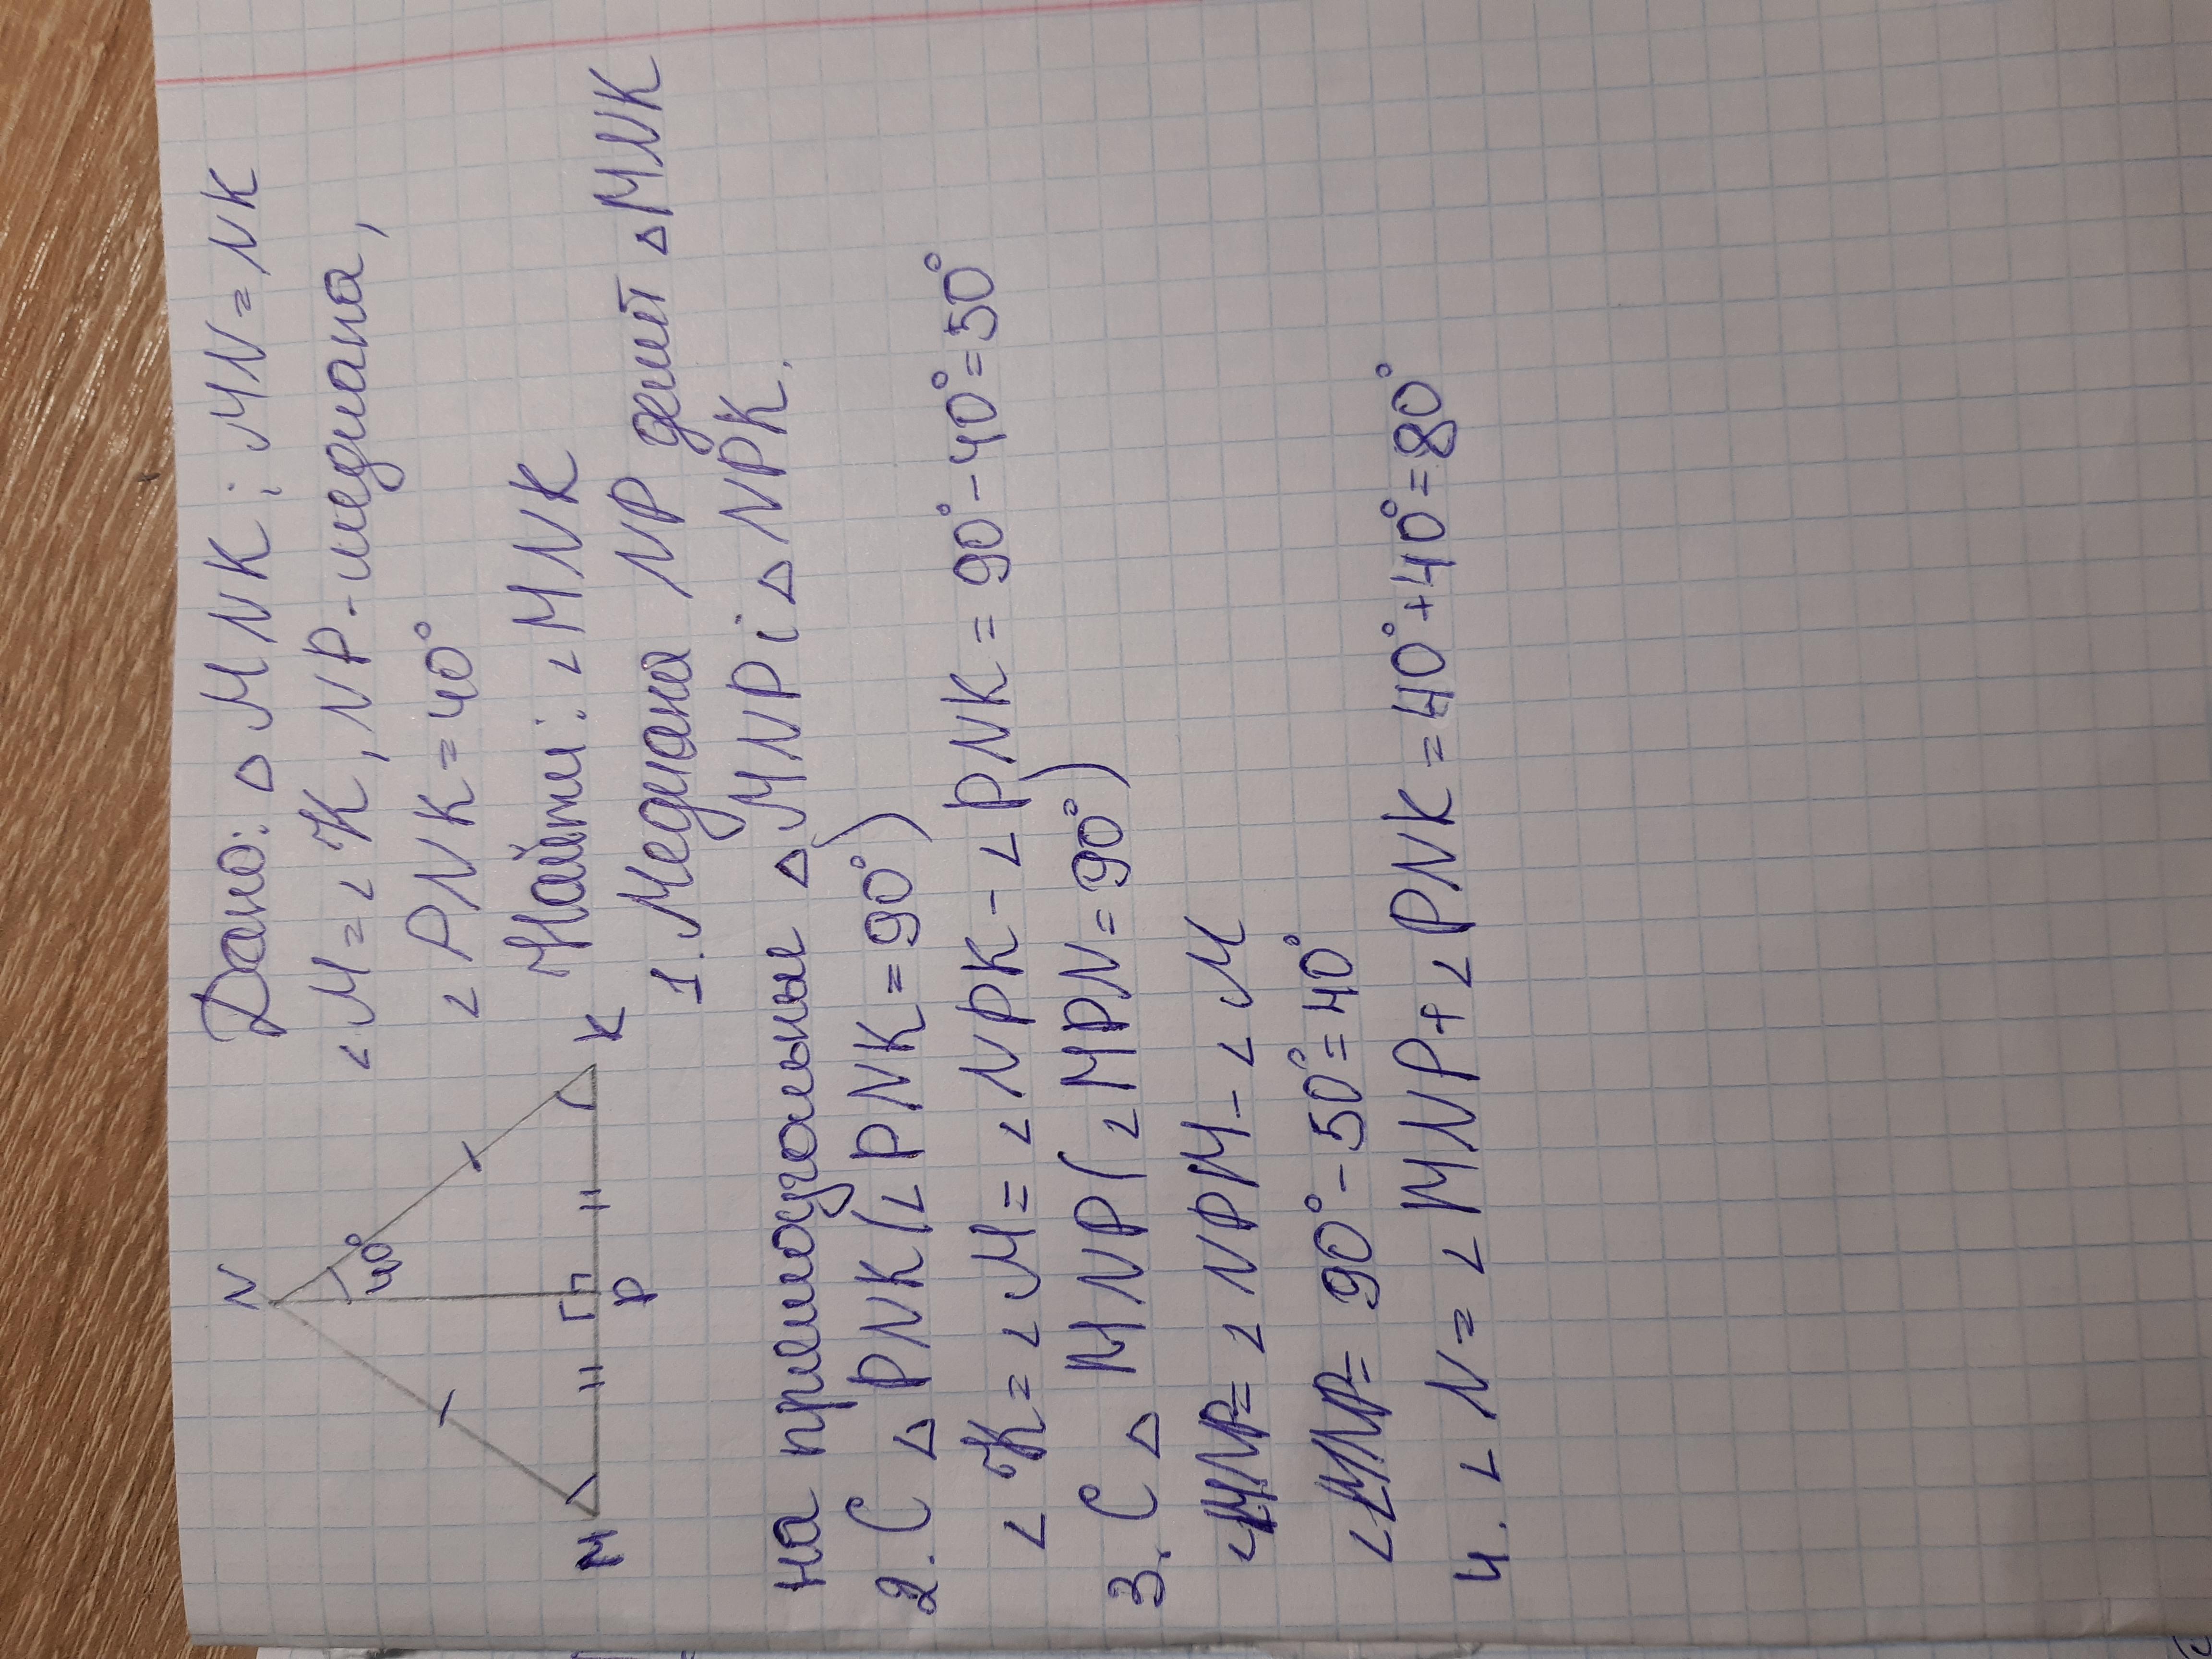 Дано: △MNK; MN=NK
∠M=∠K, NP-медиана,
∠PNK=40°
Найти: ∠MNK
1. Медиана NP делит △MNK
на прямоугольные △MNP і △NPK.
2. С △PNK(∠PNK=90°)
∠K=∠M=∠NPK-∠PNK=90°-40°=50°
3. С △ MNP(∠MPN=90°)
∠MNP=∠NPM-∠M
∠MNP=90°-50°=40°
4. ∠N=∠MNP+∠PNK=40°+40°=80°
N
40°
M
P
K